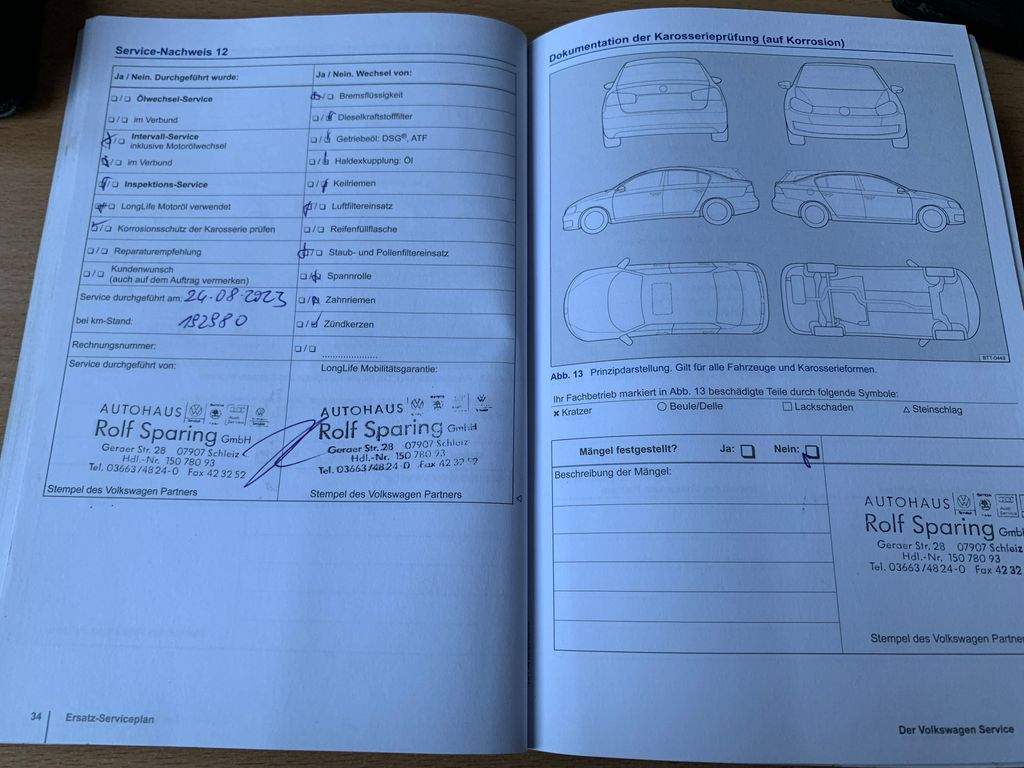 Service-Nachweis 12
Ja / Nein. Durchgeführt wurde:
❑ / ❑ Ölwechsel-Service
❑ / ❑ im Verbund
❑ / ❑ Intervall-Service
inklusive Motorölwechsel
❑ / ❑ im Verbund
❑ / ❑ Inspektions-Service
❑ / ❑ LongLife Motoröl verwendet
❑ / ❑ Korrosionsschutz der Karosserie prüfen
❑ / ❑ Reparaturempfehlung
❑ / ❑ Kundenwunsch
(auch auf dem Auftrag vermerken)
Service durchgeführt am: 24.08.2023
bei km-Stand: 192980
Rechnungsnummer:
Service durchgeführt von:
AUTOHAUS
Rolf Sparing GmbH
Geraer Str. 28 07907 Schleiz
Hdl.-Nr. 150 780 93
Tel. 03663/48 24-0 Fax 42 32 52
Stempel des Volkswagen Partners
Ja / Nein. Wechsel von:
❑ / ❑ Bremsflüssigkeit
❑ / ❑ Dieselkraftstofffilter
❑ / ❑ Getriebeöl: DSG®, ATF
❑ / ❑ Haldexkupplung: Öl
❑ / ❑ Keilriemen
❑ / ❑ Luftfiltereinsatz
❑ / ❑ Reifenfüllflasche
❑ / ❑ Staub- und Pollenfiltereinsatz
❑ / ❑ Spannrolle
❑ / ❑ Zahnriemen
❑ / ❑ Zündkerzen
❑ / ❑ ....................
LongLife Mobilitätsgarantie:
AUTOHAUS
Rolf Sparing GmbH
Geraer Str. 28 07907 Schleiz
Hdl.-Nr. 150 780 93
Tel. 03663/48 24-0 Fax 42 32 52
Stempel des Volkswagen Partners
34 Ersatz-Serviceplan
Dokumentation der Karosserieprüfung (auf Korrosion)
BTT-0449
Abb. 13 Prinzipdarstellung. Gilt für alle Fahrzeuge und Karosserieformen.
Ihr Fachbetrieb markiert in Abb. 13 beschädigte Teile durch folgende Symbole:
× Kratzer ○ Beule/Delle □ Lackschaden △ Steinschlag
Mängel festgestellt? Ja: ❑ Nein: ❑
Beschreibung der Mängel:
AUTOHAUS
Rolf Sparing GmbH
Geraer Str. 28 07907 Schleiz
Hdl.-Nr. 150 780 93
Tel. 03663/48 24-0 Fax 42 32
Stempel des Volkswagen Partner
Der Volkswagen Service